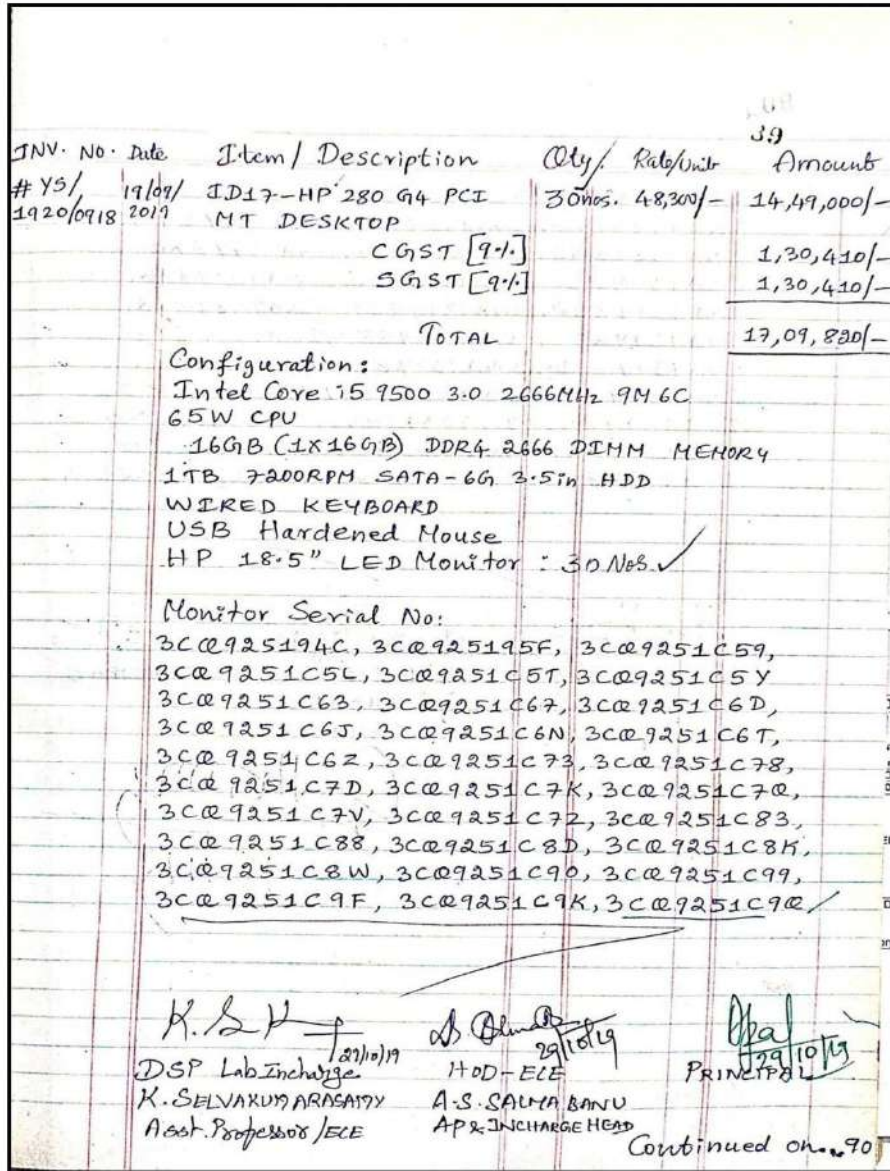 39
INV. No. Date Item / Description Qty/. Rate/unit Amount
# YS/ 19/09/ ID17-HP 280 G4 PCI 30nos. 48,300/- 14,49,000/-
1920/0918 2019 MT DESKTOP
CGST [9%] 1,30,410/-
SGST [9%] 1,30,410/-
TOTAL 17,09,820/-
Configuration:
Intel Core i5 9500 3.0 2666MHz 9M 6C
65W CPU
16GB (1X16GB) DDR4 2666 DIMM MEMORY
1TB 7200RPM SATA-6G 3.5in HDD
WIRED KEYBOARD
USB Hardened Mouse
HP 18.5" LED Monitor : 30 Nos. ✓
Monitor Serial No:
3CQ925194C, 3CQ925195F, 3CQ9251C59,
3CQ9251C5L, 3CQ9251C5T, 3CQ9251C5Y
3CQ9251C63, 3CQ9251C67, 3CQ9251C6D,
3CQ9251C6J, 3CQ9251C6N, 3CQ9251C6T,
3CQ9251C6Z, 3CQ9251C73, 3CQ9251C78,
3CQ9251C7D, 3CQ9251C7K, 3CQ9251C7Q,
3CQ9251C7V, 3CQ9251C7Z, 3CQ9251C83,
3CQ9251C88, 3CQ9251C8D, 3CQ9251C8K,
3CQ9251C8W, 3CQ9251C90, 3CQ9251C99,
3CQ9251C9F, 3CQ9251C9K, 3CQ9251C9Q
29/10/19 29/10/19 29/10/19
DSP Lab Incharge HOD-ECE PRINCIPAL
K. SELVAKUMARASAMY A.S. SALMA BANU
Asst. Professor /ECE AP & INCHARGE HEAD
Continued on...90